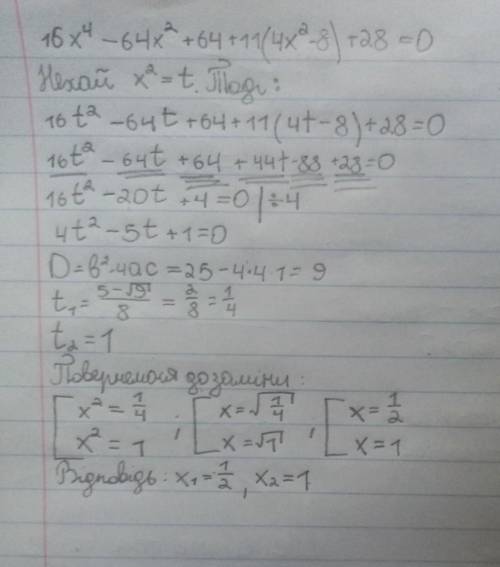 16x⁴ - 64x² + 64 + 11(4x² - 8) + 28 = 0
Нехай x² = t. Тоді:
16t² - 64t + 64 + 11(4t - 8) + 28 = 0
16t² - 64t + 64 + 44t - 88 + 28 = 0
16t² - 20t + 4 = 0 | ÷4
4t² - 5t + 1 = 0
D = в² - 4ас = 25 - 4·4·1 = 9
t₁ = (5 - √9)/8 = 2/8 = 1/4
t₂ = 1
Повернемося до заміни:
[x² = 1/4; x² = 1 ; [x = √(1/4); x = √1 ; [x = 1/2; x = 1
Відповідь: x₁ = 1/2, x₂ = 1